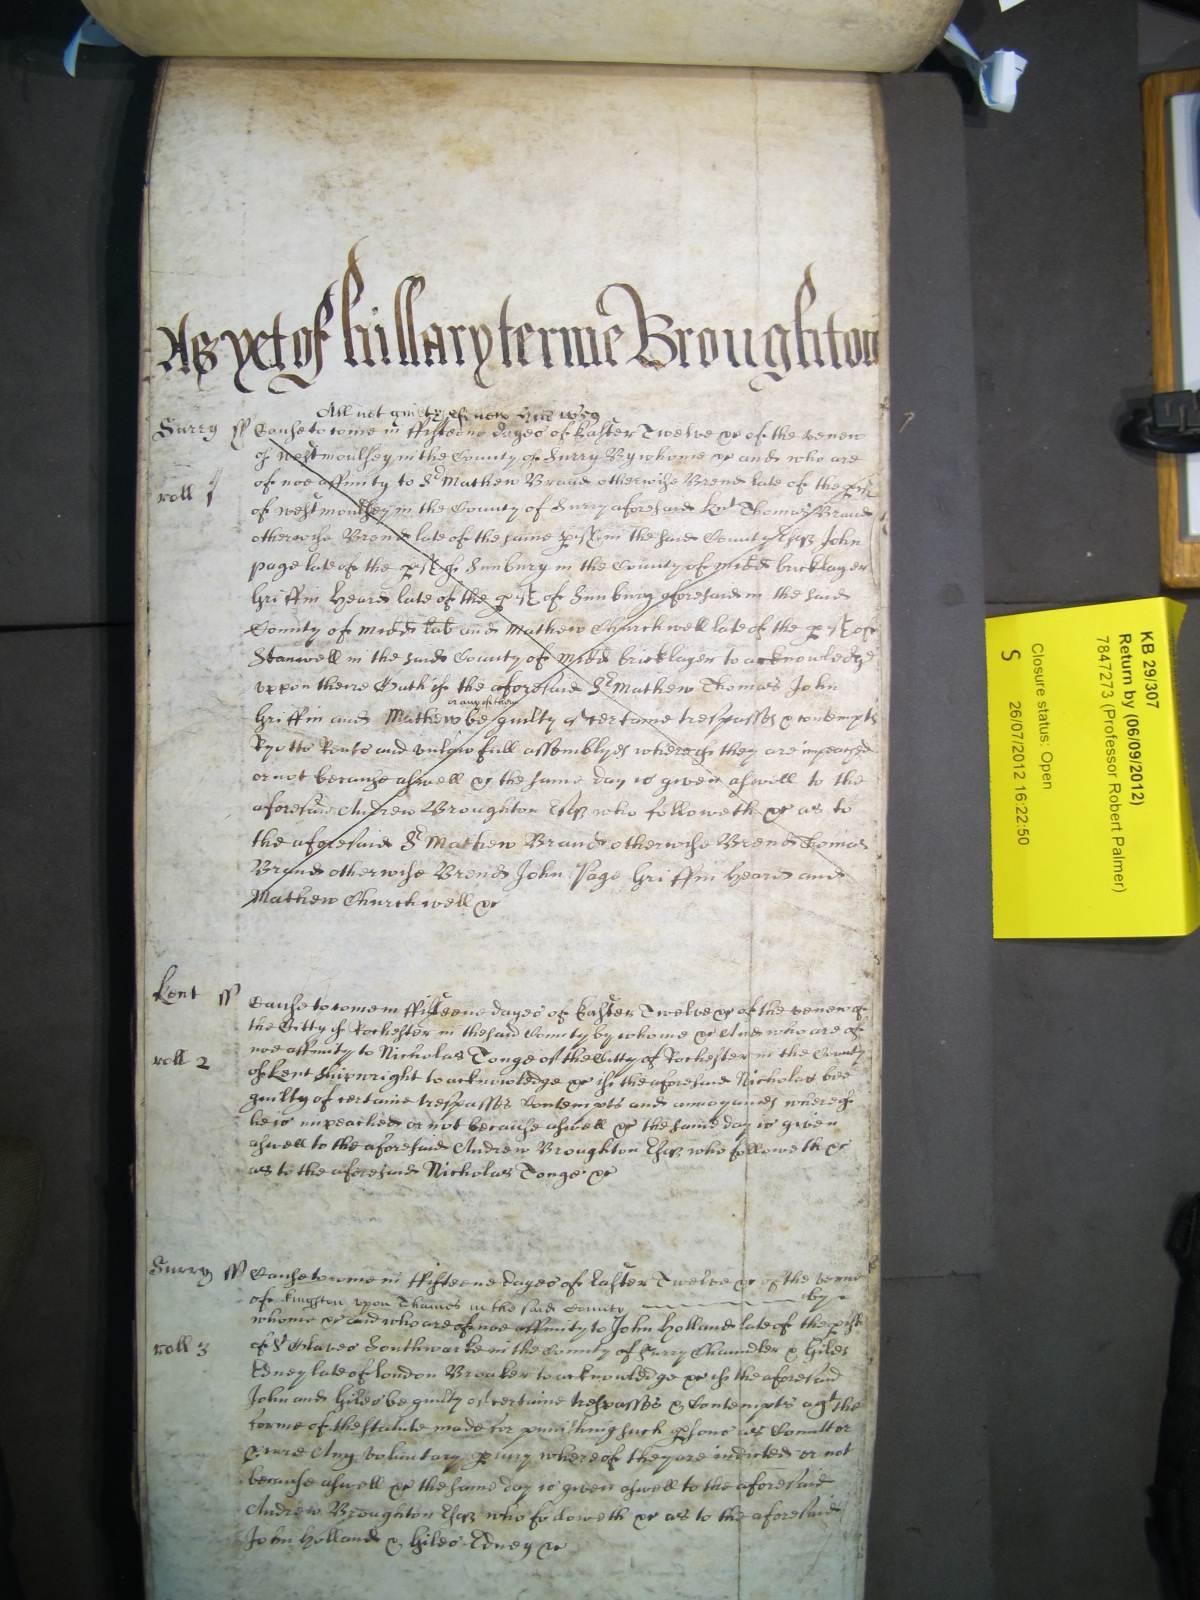 As yet of hillary terme Broughton
All not guilty
Surry ss Cause to come in ffifteene dayes of Easter Twelve &c of the venew
of Westmoulsey in the County of Surry By whome &c and who are
roll 1
of noe affinity to Sr Mathew Brand otherwise Brend late of the pish
of west moulsey in the County of Surry aforesaid knt Thomas Brand
otherwise Brend late of the same pish in the said County Esqr John
page late of the pish of Sunbury in the County of Midd bricklayer
Griffin Heard late of the pish of Sunbury aforesaid in the said
County of Midd lab and Mathew Churchwell late of the pish of
Stanwell in the said County of Midd bricklayer to acknowledge
uppon there Oath if the aforesaid Sr Mathew Thomas John
or any of them
Griffin and Mathew be guilty of certaine trespasses & contempts
Ryotts Routs and unlawfull assemblyes whereof they are impeached
or not because aswell &c the same day is given aswell to the
aforesaid Andrew Broughton Esqr who followeth &c as to
the aforesaid Sr Mathew Brand otherwise Brend Thomas
Brand otherwise Brend John Page Griffin Heard and
Mathew Churchwell &c
Kent ss
Cause to come in ffifteene dayes of Easter Twelve &c of the venew of
the Citty of Rochester in the said County by whome &c And who are of
roll 2
noe affinity to Nicholas Tonge of the Citty of Rochester in the County
of Kent Shipwright to acknowledge &c if the aforesaid Nicholas bee
guilty of certaine trespasses Contempts and annoyances whereof
he is impeached or not because aswell &c the same day is given
aswell to the aforesaid Andrew Broughton Esqr who followeth &c
as to the aforesaid Nicholas Tonge &c
Surry ss Cause to come in ffifteene dayes of Easter Twelve &c of the venew
of Kingston upon Thames in the said County by
whome &c and who are of noe affinity to John Holland late of the pish
roll 3
of St Olaves Southwarke in the County of Surry Chandler & Giles
Edney late of London Broaker to acknowledge &c if the aforesaid
John and Giles be guilty of certaine trespasses & Contempts agt the
forme of the statute made for punishing such psons as Comitt or
pcure Any voluntary piury whereof they are indicted or not
because aswell &c the same day is given aswell to the aforesaid
Andrew Broughton Esqr who followeth &c as to the aforesaid
John Holland & Giles Edney &c
KB 29/307
Return by (06/09/2012)
7847273 (Professor Robert Palmer)
Closure status: Open
S 26/07/2012 16:22:50